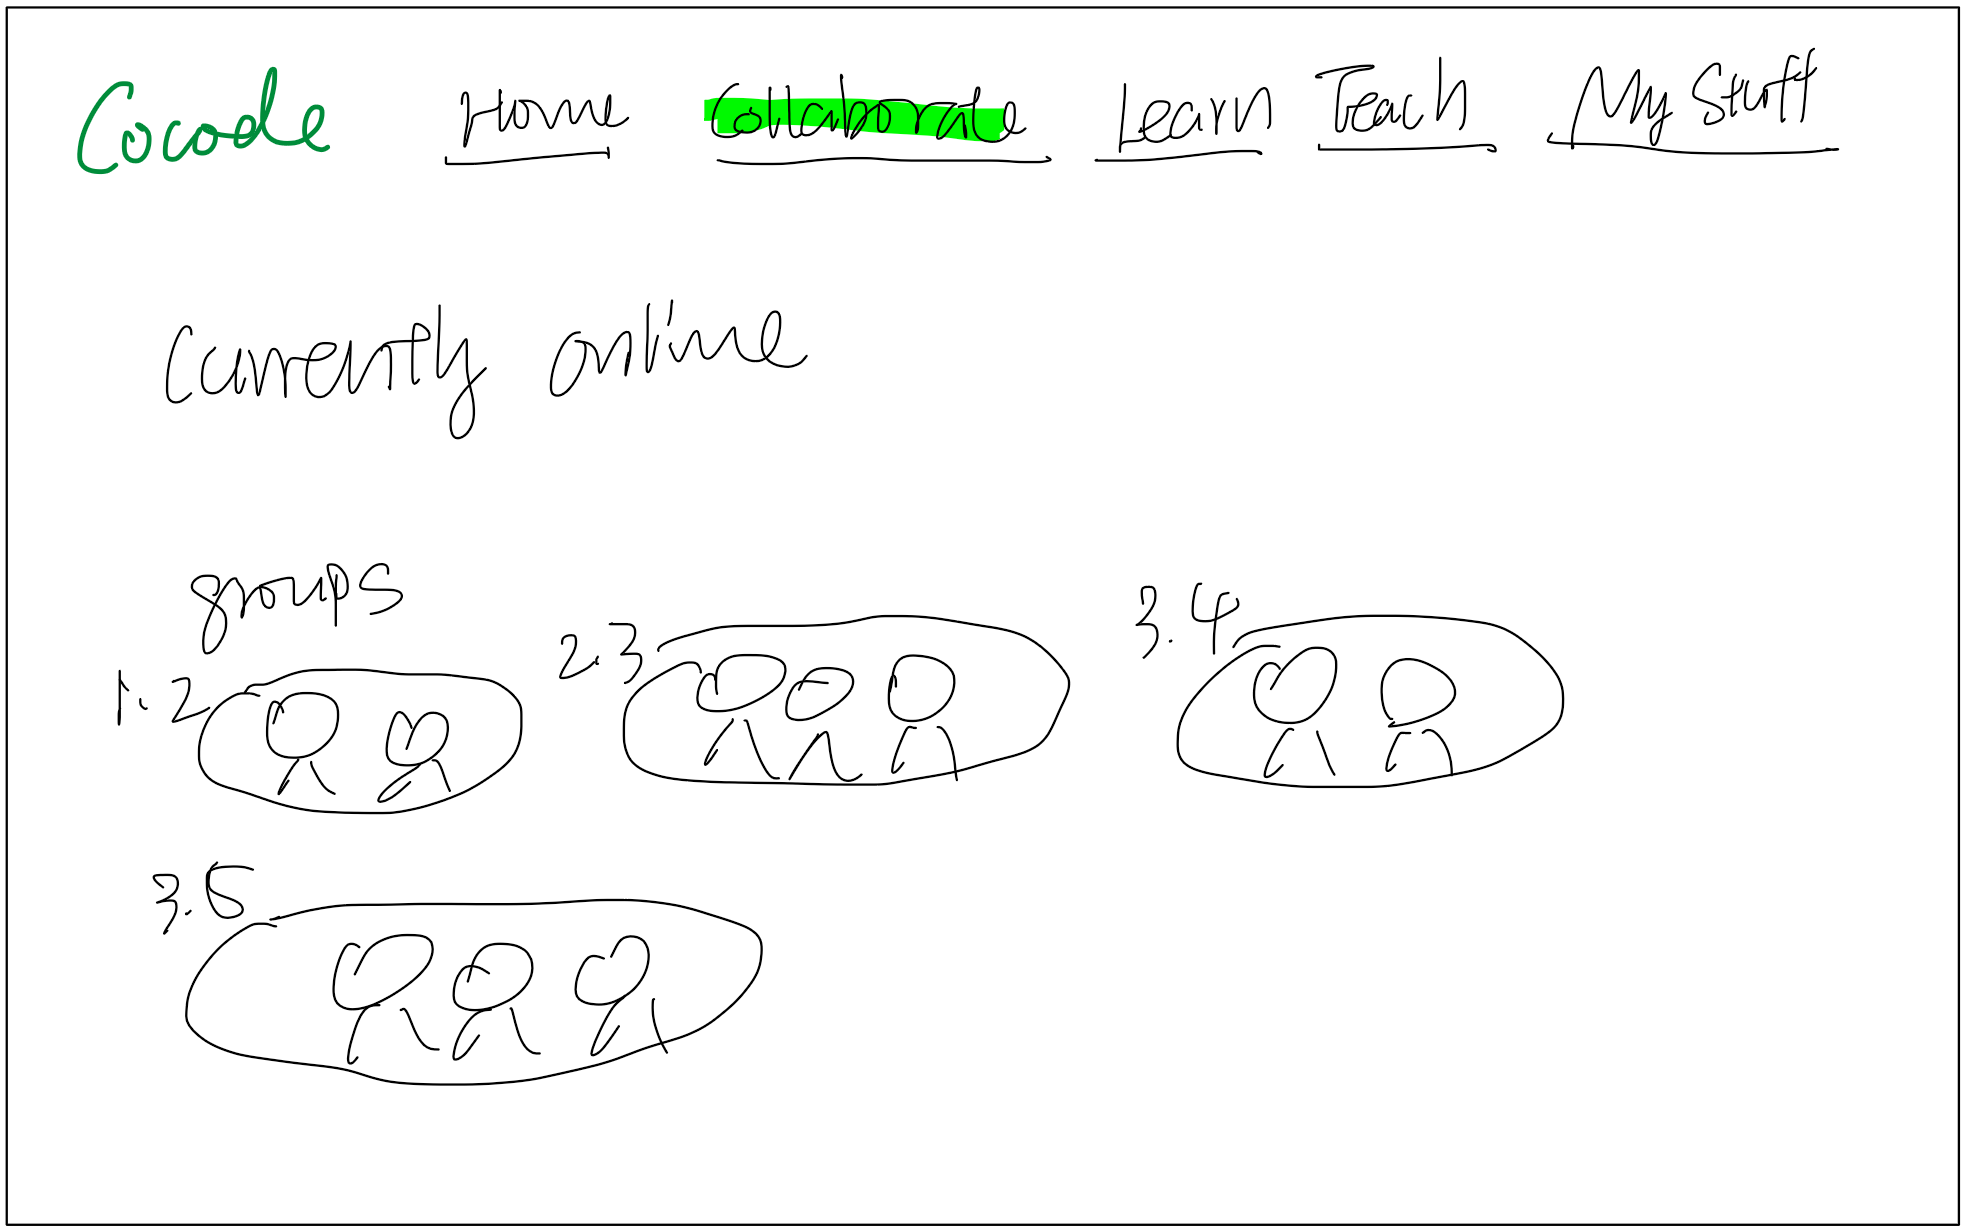 Cocode Home Collaborate Learn Teach My Stuff
Currently online
groups
1.2 2.3 3.4
3.5